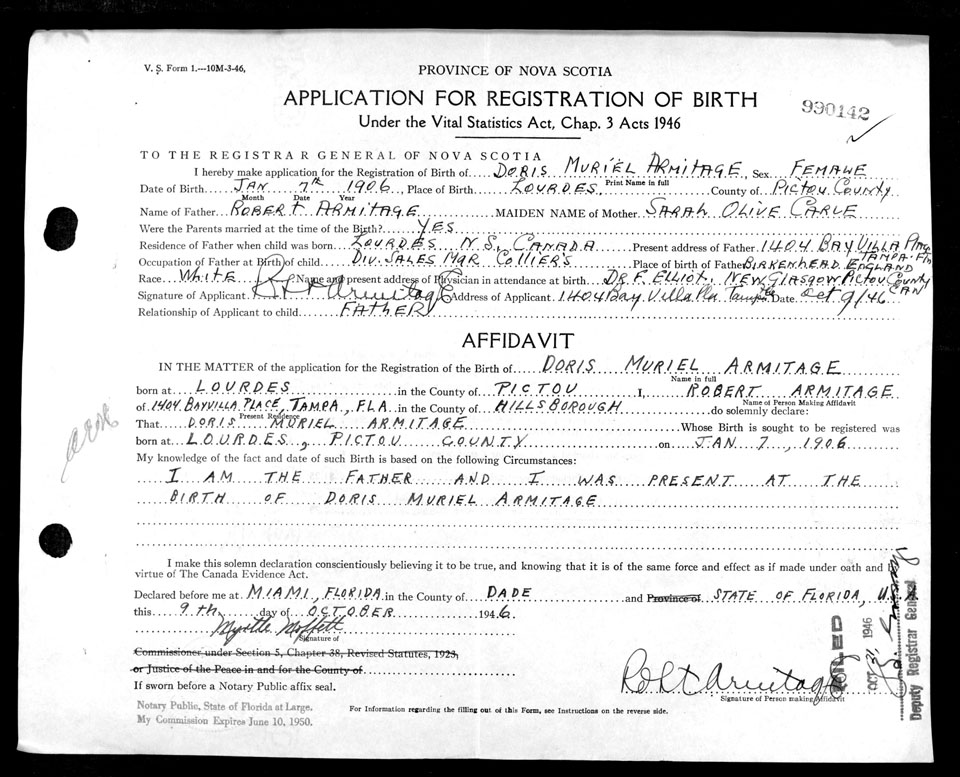 V. S. Form 1.---10M-3-46,
PROVINCE OF NOVA SCOTIA
APPLICATION FOR REGISTRATION OF BIRTH
990142
Under the Vital Statistics Act, Chap. 3 Acts 1946
TO THE REGISTRAR GENERAL OF NOVA SCOTIA
I hereby make application for the Registration of Birth of DORIS MURIEL ARMITAGE Sex FEMALE
Print Name in full
Date of Birth JAN 7th 1906 Place of Birth LOURDES County of PICTOU COUNTY
Month Date Year
Name of Father ROBERT ARMITAGE MAIDEN NAME of Mother SARAH OLIVE CARLE
Were the Parents married at the time of the Birth? YES
Residence of Father when child was born LOURDES N.S. CANADA Present address of Father 1404 BAY VILLA Place TAMPA FLA
Occupation of Father at Birth of child DIV. SALES MGR COLLIER'S Place of birth of Father BIRKENHEAD ENGLAND
Race WHITE Name and present address of Physician in attendance at birth DR F. ELLIOT, NEW GLASGOW PICTOU COUNTY CAN
Signature of Applicant Robt Armitage Address of Applicant 1404 Bay Villa Pla Tampa Fla Date Oct 9/46
Relationship of Applicant to child FATHER
AFFIDAVIT
IN THE MATTER of the application for the Registration of the Birth of DORIS MURIEL ARMITAGE
Name in full
born at LOURDES in the County of PICTOU I, ROBERT ARMITAGE
Name of Person Making Affidavit
of 1404 BAYVILLA PLACE, TAMPA, FLA in the County of HILLSBOROUGH do solemnly declare:
Present Residence
That DORIS MURIEL ARMITAGE Whose Birth is sought to be registered was
born at LOURDES, PICTOU COUNTY on JAN 7, 1906
My knowledge of the fact and date of such Birth is based on the following Circumstances:
I AM THE FATHER AND I WAS PRESENT AT THE
BIRTH OF DORIS MURIEL ARMITAGE
I make this solemn declaration conscientiously believing it to be true, and knowing that it is of the same force and effect as if made under oath and by
virtue of The Canada Evidence Act.
Declared before me at MIAMI, FLORIDA in the County of DADE and Province of STATE OF FLORIDA, U.S.A
this 9th day of OCTOBER 1946
Myrtle Moffett
Signature of
Commissioner under Section 5, Chapter 38, Revised Statutes, 1923,
or Justice of the Peace in and for the County of
If sworn before a Notary Public affix seal.
Robt Armitage
Signature of Person making Affidavit
Notary Public, State of Florida at Large.
My Commission Expires June 10, 1950.
For Information regarding the filling out of this Form, see Instructions on the reverse side.
OCT 31 1946
Deputy Registrar General